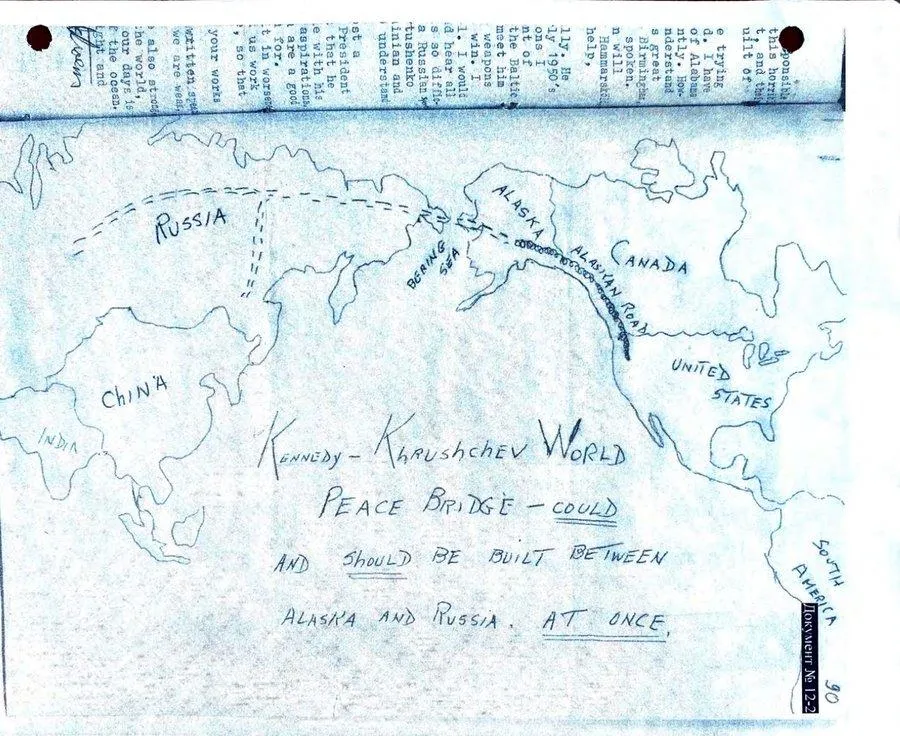 ponsibl
this horri
t, and the
uilt of
e trying
d. I have
of Alabama
ntly. How-
nderstand
s great
Birmingham
spoken.
n will
Hammarskj
help,
lly. He
ly, 1950's
ons I
nt of
the Baltic
meet him
weapons
win. I
l. would
d hear all
s so diffic-
a Russian
tushenko
inian and
understan
st a
President
that he
e with his
aspiration
are a good
for.
us work
, so that
your works
written spe
we are weak
also stron
he world,
our days is
the ocean.
ght and
ALASKA
RUSSIA
CANADA
BERING
SEA
ALASKAN ROAD
UNITED
STATES
CHINA
INDIA
KENNEDY - KHRUSHCHEV WORLD
PEACE BRIDGE - COULD
AND SHOULD BE BUILT BETWEEN
ALASKA AND RUSSIA. AT ONCE.
SOUTH
AMERICA
Документ № 12-2
90